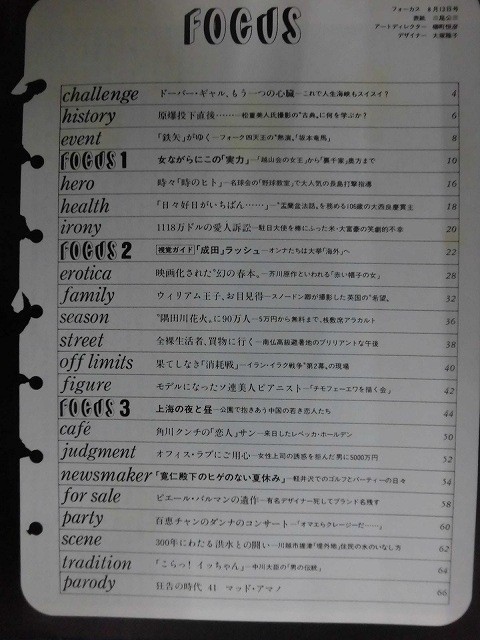 FOCUS
フォーカス 8月13日号
表紙 三尾公三
アートディレクター
デザイナー 大塚陽子
challenge ドーバー・ギャル、もう一つの心臓—これで人生海峡もスイスイ? 4
history 原爆投下直後………松重美人氏撮影の“古典”に何を学ぶか? 6
event 「鉄矢」がゆく—フォーク四天王の“熱演”「坂本竜馬」 8
FOCUS 1 女ながらにこの「実力」—「越山会の女王」から「裏千家」奥方まで 10
hero 時々「時のヒト」—名球会の「野球教室」で大人気の長島打撃指導 16
health 「日々好日がいちばん……」—“盂蘭盆法話”を務める106歳の大西良慶貫主 18
irony 1118万ドルの愛人訴訟—駐日大使を棒にふった米・大富豪の笑劇的不命 20
FOCUS 2 視覚ガイド「成田」ラッシュ—オンナたちは大挙「海外」へ 22
erotica 映画化された“幻の春本”—芥川原作といわれる「赤い帽子の女」 28
family ウィリアム王子、お目見得—スノードン卿が撮影した英国の“希望” 32
season “隅田川花火”に90万人—5万円から無料まで、桟敷席アラカルト 36
street 全裸生活者、買物に行く—南仏高級避暑地のブリリアントな午後 38
off limits 果てしなき「消耗戦」—イラン・イラク戦争“第2幕”の現場 40
figure モデルになったソ連美人ピアニスト—「チモフェーエワを描く会」 42
FOCUS 3 上海の夜と昼—公園で抱きあう中国の若き恋人たち 44
café 角川クンチの「恋人」サン—来日したレベッカ・ホールデン 50
judgment オフィス・ラブにご用心—女性上司の誘惑を拒んだ男に5000万円 52
newsmaker 「寛仁殿下のヒゲのない夏休み」—軽井沢でのゴルフとパーティーの日々 54
for sale ピエール・バルマンの遺作—有名デザイナー死してブランド名残す 58
party 百恵チャンのダンナのコンサート—「オマエらクレージーだ……」 60
scene 300年にわたる洪水との闘い—川越市鴨津「堤外地」住民の水のいなし方 62
tradition 「こらっ! イッちゃん」—中川大臣の「男の伝統」 64
parody 狂告の時代 41 マッド・アマノ 66